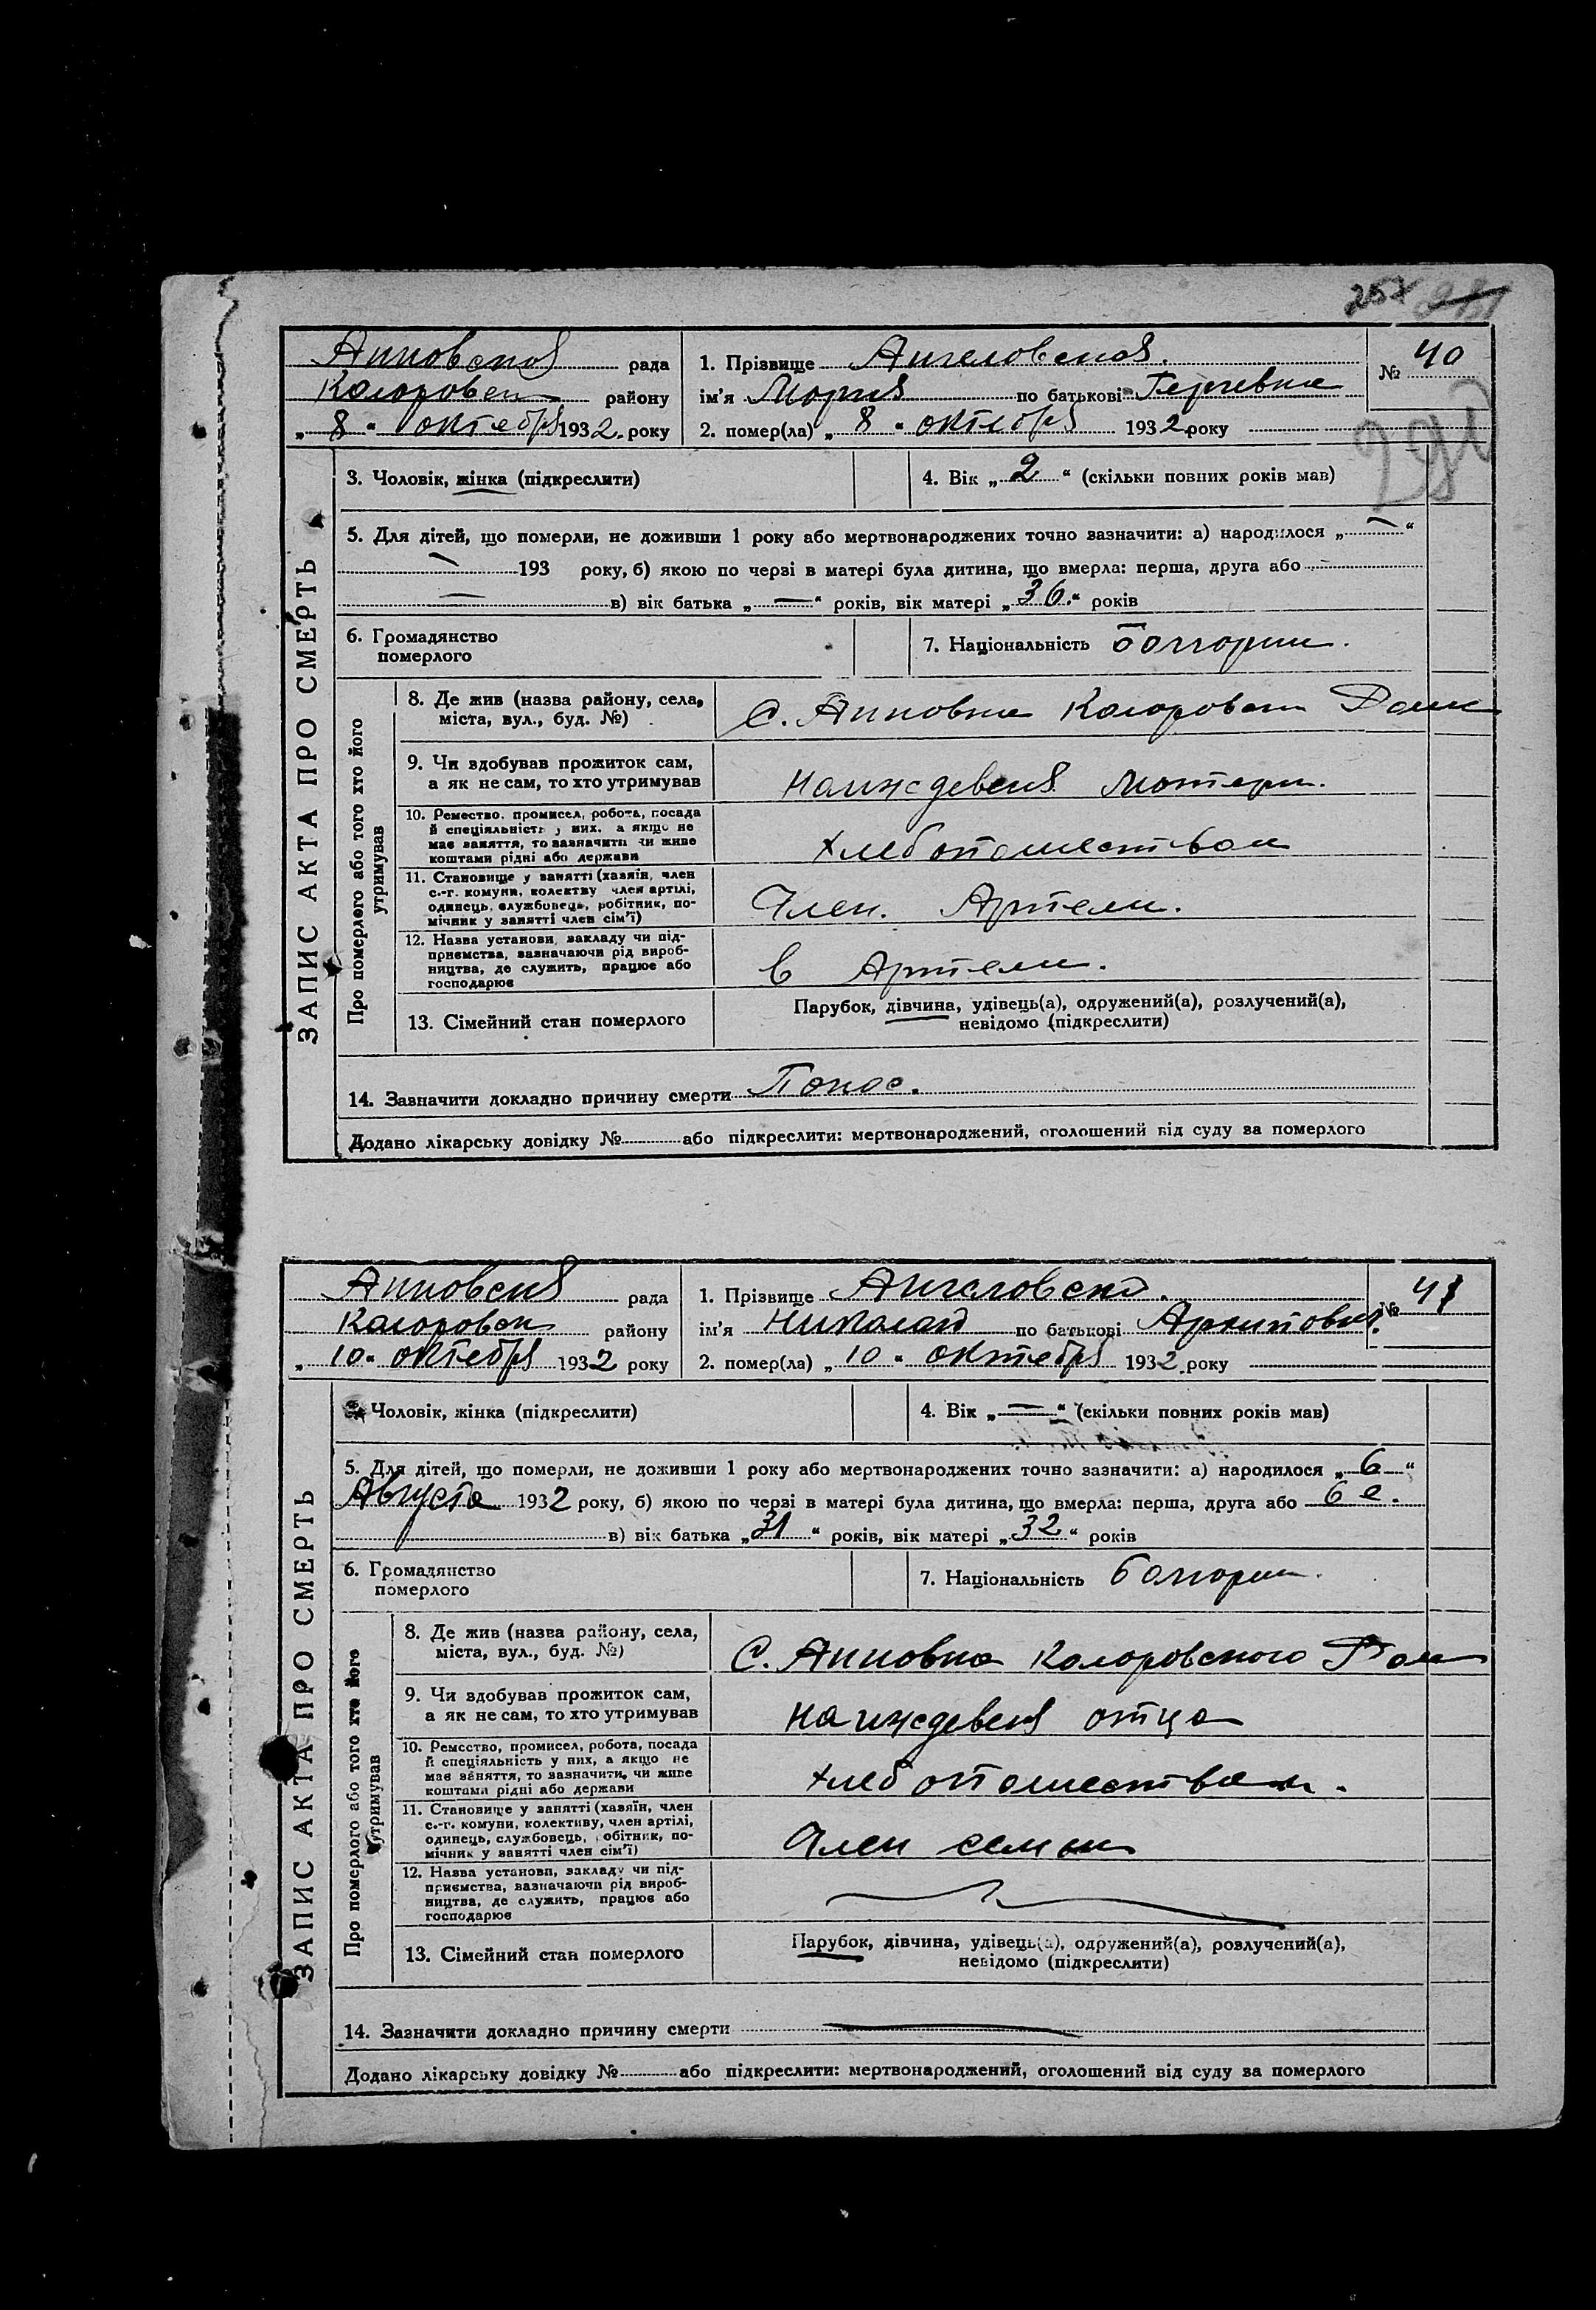 257
Анновская рада
Коларовск району
„ 8 “ октября 1932 року
1. Прізвище Ангеловская.
ім'я Мария по батькові Герчевна
2. помер(ла) „ 8 “ октября 1932 року
№ 40
ЗАПИС АКТА ПРО СМЕРТЬ
3. Чоловік, жінка (підкреслити)
4. Вік „ 2 “ (скільки повних років мав)
5. Для дітей, що померли, не доживши 1 року або мертвонароджених точно зазначити: а) народилося „ — “
— 193 року, б) якою по черзі в матері була дитина, що вмерла: перша, друга або
— в) вік батька „ — “ років, вік матері „ 36. “ років
6. Громадянство
померлого
7. Національність болгарин.
Про померлого або того хто його
утримував
8. Де жив (назва району, села,
міста, вул., буд. №)
С. Анновка Коларовск Район
9. Чи здобував прожиток сам,
а як не сам, то хто утримував
на иждевеня Мотери.
10. Ремество, промисел, робота, посада
й спеціяльність у них, а якщо не
має заняття, то зазначити чи живе
коштами рідні або держави
хлебопашеством
11. Становище у занятті (хазяїн, член
с.-г. комуни, колективу член артілі,
одинець, службовець, робітник, по-
мічник у занятті член сім'ї)
Член. Артели.
12. Назва установи, закладу чи під-
приємства, зазначаючи рід вироб-
ництва, де служить, працює або
господарює
в Артели.
13. Сімейний стан померлого
Парубок, дівчина, удівець(а), одружений(а), розлучений(а),
невідомо (підкреслити)
14. Зазначити докладно причину смерти Понос.
Додано лікарську довідку № або підкреслити: мертвонароджений, оголошений від суду за померлого
Анновская рада
Коларовск району
„ 10 “ октября 1932 року
1. Прізвище Ангеловский.
ім'я Николай по батькові Архипович.
2. помер(ла) „ 10 “ октября 1932 року
№ 41
ЗАПИС АКТА ПРО СМЕРТЬ
Чоловік, жінка (підкреслити)
4. Вік „ — “ (скільки повних років мав)
5. Для дітей, що померли, не доживши 1 року або мертвонароджених точно зазначити: а) народилося „ 6 “
Августа 1932 року, б) якою по черзі в матері була дитина, що вмерла: перша, друга або 6 е.
в) вік батька „ 31 “ років, вік матері „ 32 “ років
6. Громадянство
померлого
7. Національність болгарин.
Про померлого або того хто його
утримував
8. Де жив (назва району, села,
міста, вул., буд. №)
С. Анновка Коларовского Район
9. Чи здобував прожиток сам,
а як не сам, то хто утримував
на иждевеня отца
10. Ремество, промисел, робота, посада
й спеціяльність у них, а якщо не
має заняття, то зазначити, чи живе
коштами рідні або держави
хлебопашеством.
11. Становище у занятті (хазяїн, член
с.-г. комуни, колективу, член артілі,
одинець, службовець, робітник, по-
мічник у занятті член сім'ї)
Член семьи
12. Назва установи, закладу чи під-
приємства, зазначаючи рід вироб-
ництва, де служить, працює або
господарює
13. Сімейний стан померлого
Парубок, дівчина, удівець(а), одружений(а), розлучений(а),
невідомо (підкреслити)
14. Зазначити докладно причину смерти
Додано лікарську довідку № або підкреслити: мертвонароджений, оголошений від суду за померлого